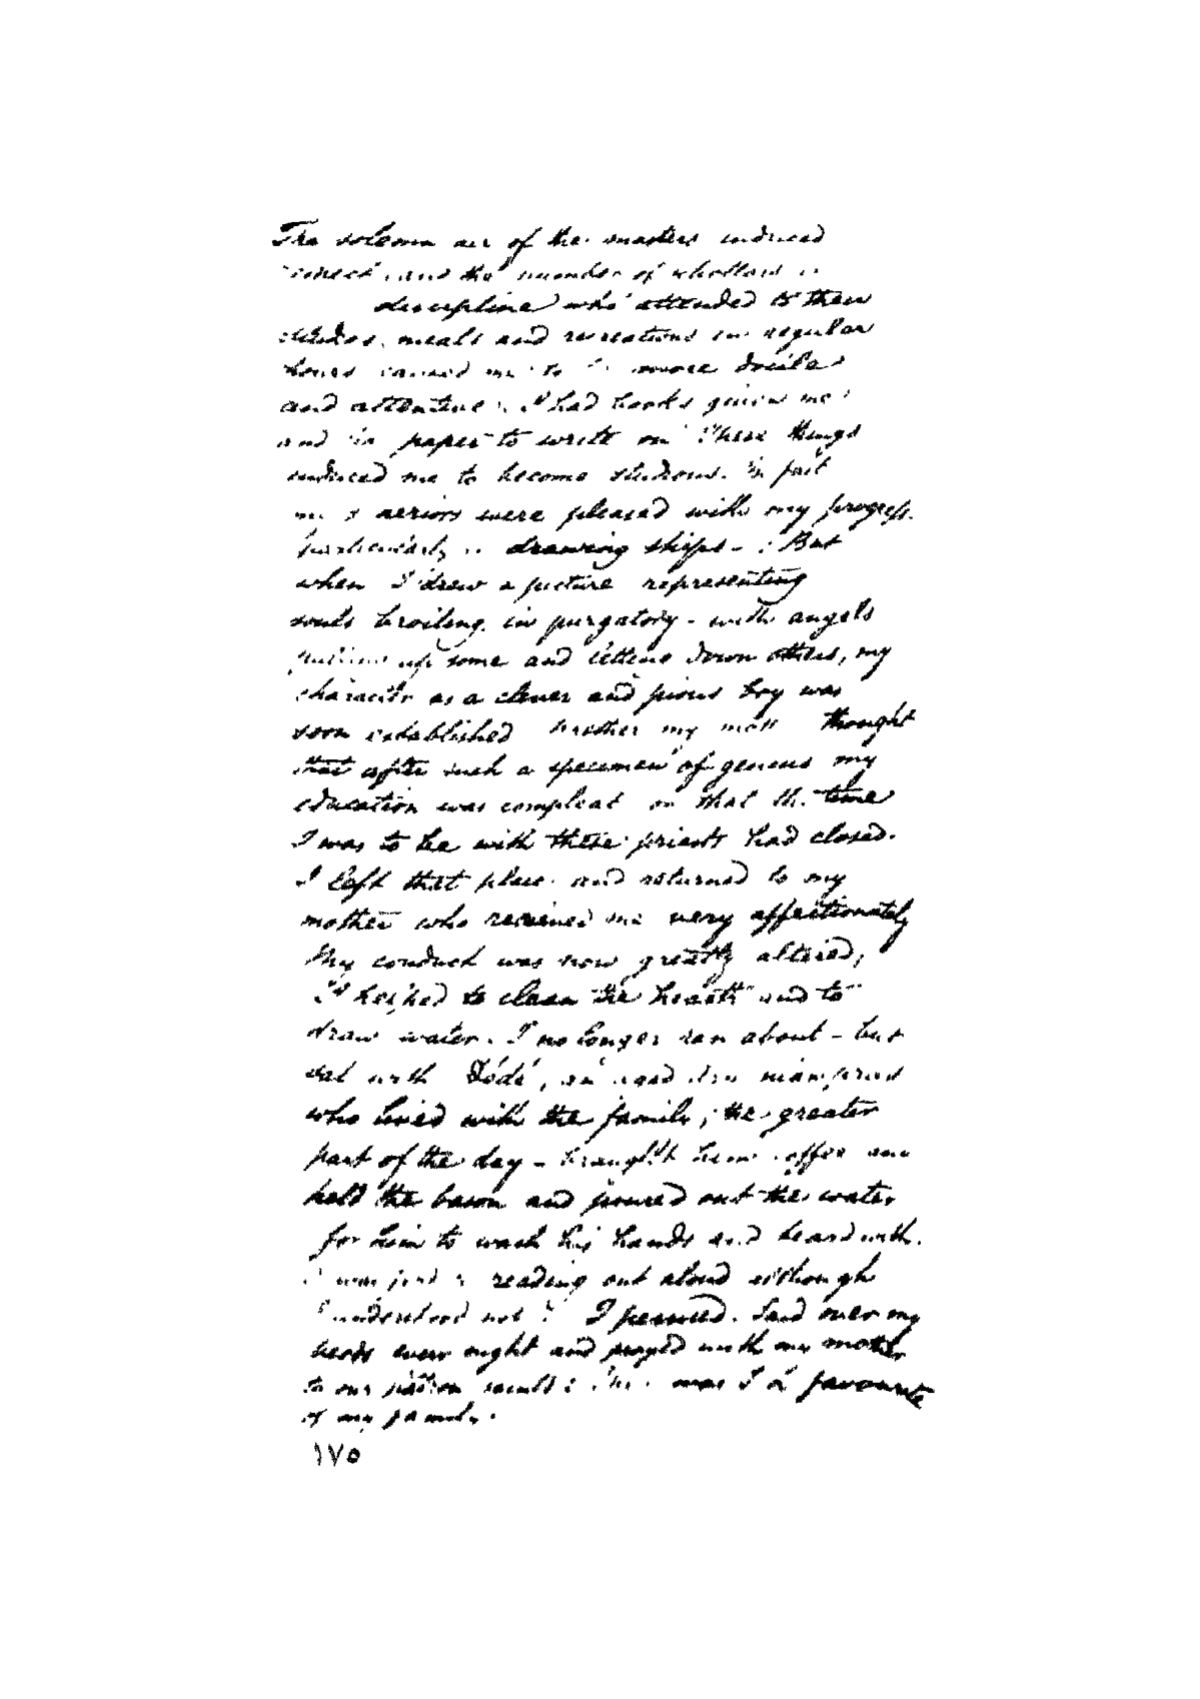 The solemn air of the masters induced
and the number of
discipline who attended to their
meals and recreations in regular
hours caused me to more docile
and attentive. I had books given me
and paper to write on These things
induced me to become studious. In fact
were pleased with my progress.
particularly in drawing ships - But
when I drew a picture representing
souls broiling in purgatory - with angels
up some and letting down others, my
character as a clever and pious boy was
soon established mother thought
that after such a specimen of genius my
education was compleat or that the time
I was to be with these priests had closed.
I left that place and returned to my
mother who received me very affectionately
My conduct was now greatly altered,
I helped to clean the hearth and to
draw water. I no longer ran about - but
sat with Dódó, an aged
who lived with the family, the greater
part of the day - brought him coffee and
held the bason and poured out the water
for him to wash his hands and beard with.
reading out aloud although
I understood not I perused. Said over my
beads every night and prayed with my mother
to our patron saint was I a favourite
of my family.
١٧٥